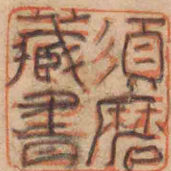 須磨
藏書